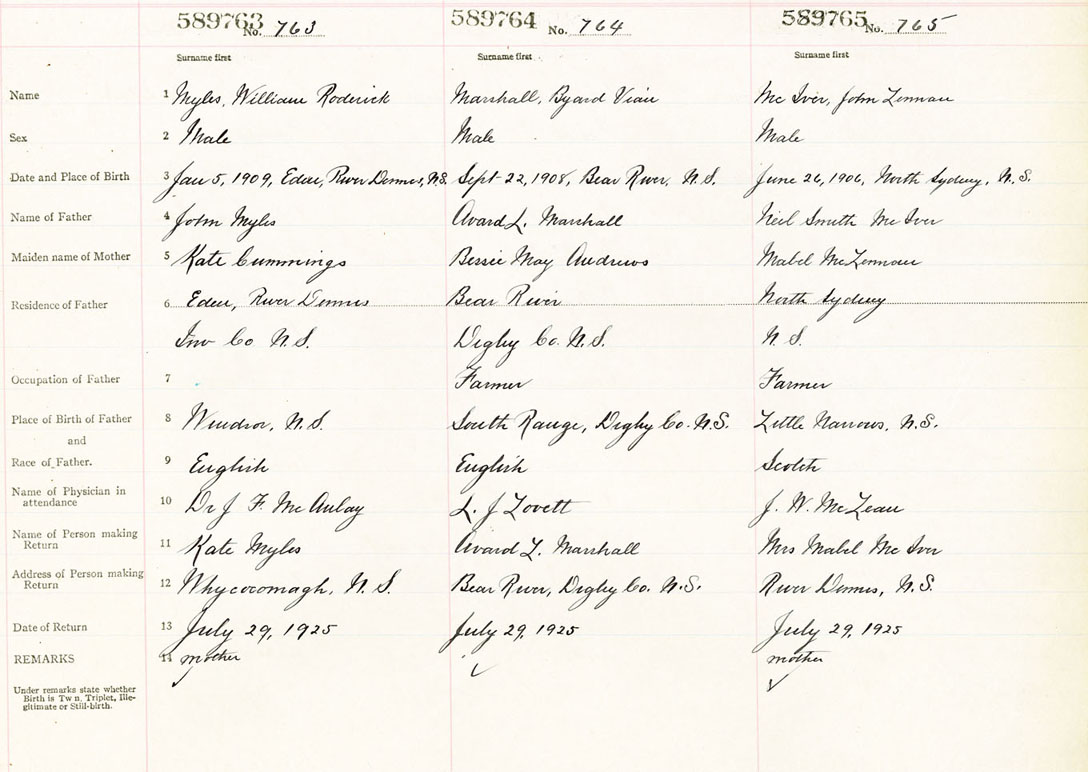 589763 No. 763 589764 No. 764 589765 No. 765
Surname first Surname first Surname first
Name 1 Myles, William Roderick Marshall, Byard Mc Iver, John Lennan
Sex 2 Male Male Male
Date and Place of Birth 3 Jan 5, 1909, Eden, River Dennis, N.S. Sept 22, 1908, Bear River, N.S. June 26, 1906, North Sydney, N.S.
Name of Father 4 John Myles Avard L. Marshall Neil Smith Mc Iver
Maiden name of Mother 5 Kate Cummings Bessie May Andrews Mabel McLennan
Residence of Father 6 Eden, River Dennis Bear River North Sydney
Inv Co N.S. Digby Co. N.S. N.S.
Occupation of Father 7 Farmer Farmer
Place of Birth of Father 8 Windsor, N.S. South Range, Digby Co. N.S. Little Narrows, N.S.
and
Race of Father. 9 English English Scotch
Name of Physician in
attendance 10 Dr J F. Mc Aulay L. J Lovett J. W. McLean
Name of Person making
Return 11 Kate Myles Avard L. Marshall Mrs Mabel Mc Iver
Address of Person making
Return 12 Whycocomagh, N.S. Bear River, Digby Co. N.S. River Dennis, N.S.
Date of Return 13 July 29, 1925 July 29, 1925 July 29, 1925
REMARKS 14 mother mother
Under remarks state whether
Birth is Tw n, Triplet, Ille-
gitimate or Still-birth.